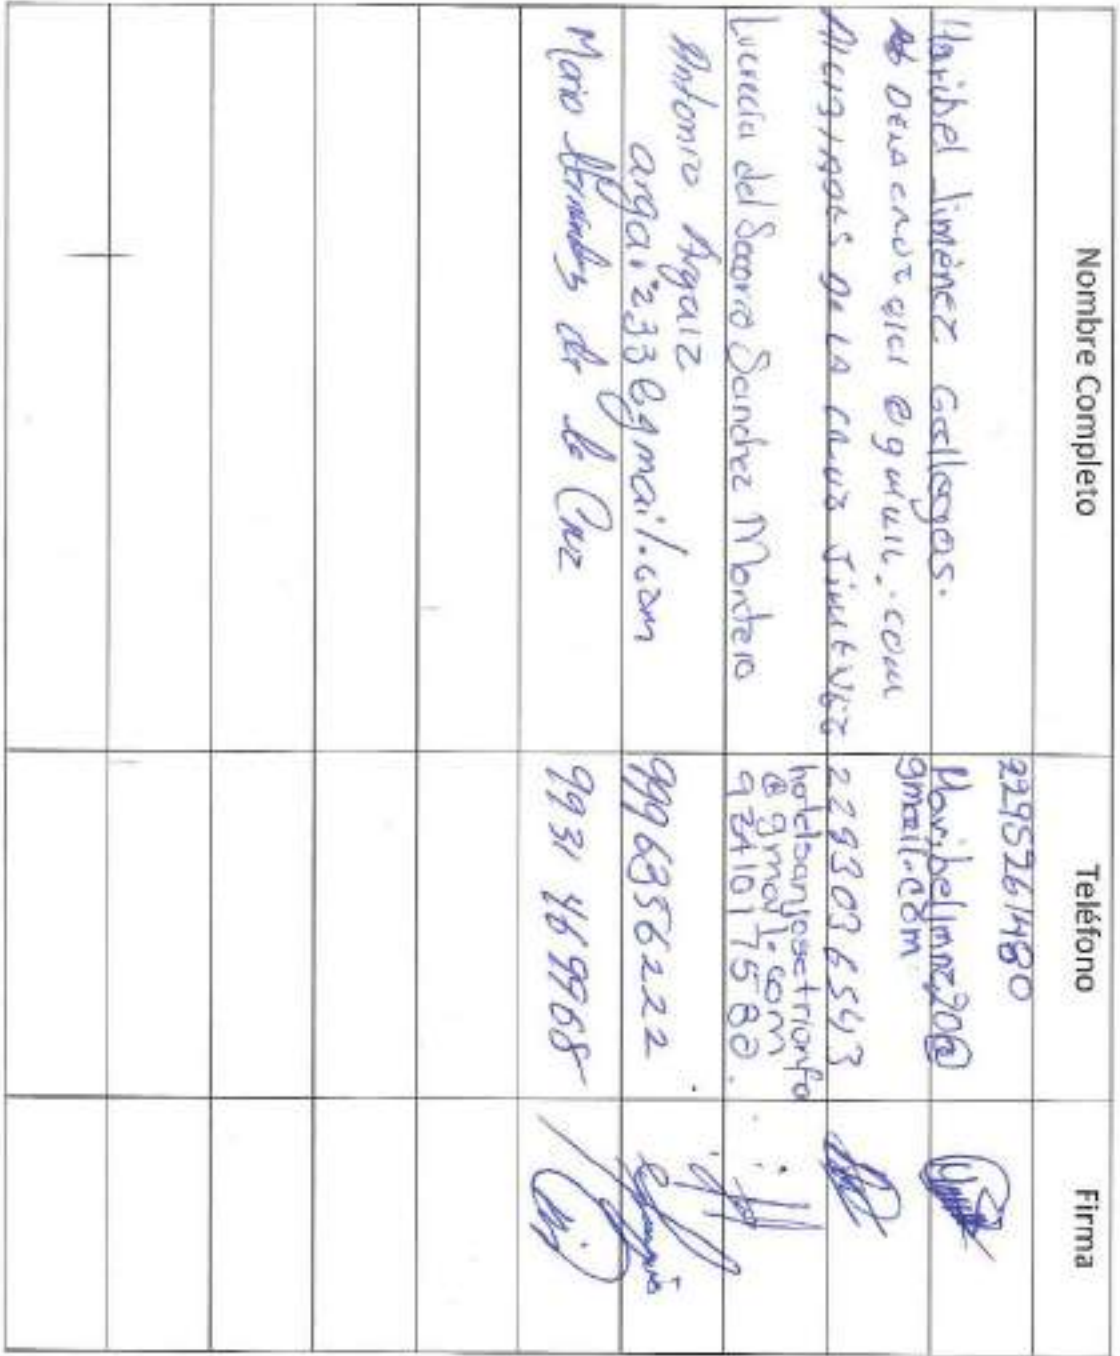 Nombre Completo Teléfono Firma
Maribel Jiménez Gallegos. 2295261480
Maribeljmnz20@
gmail.com
@gmail.com
DE LA CRUZ JIMENEZ 2293036543
Lucrecia del Socorro Sanchez Montero hotelsanjosetrionfo
@gmail.com
9341017580.
Antonio Argaiz
argai233@gmail.com 9996356222
Mario Hernandez de la Cruz 9931469968